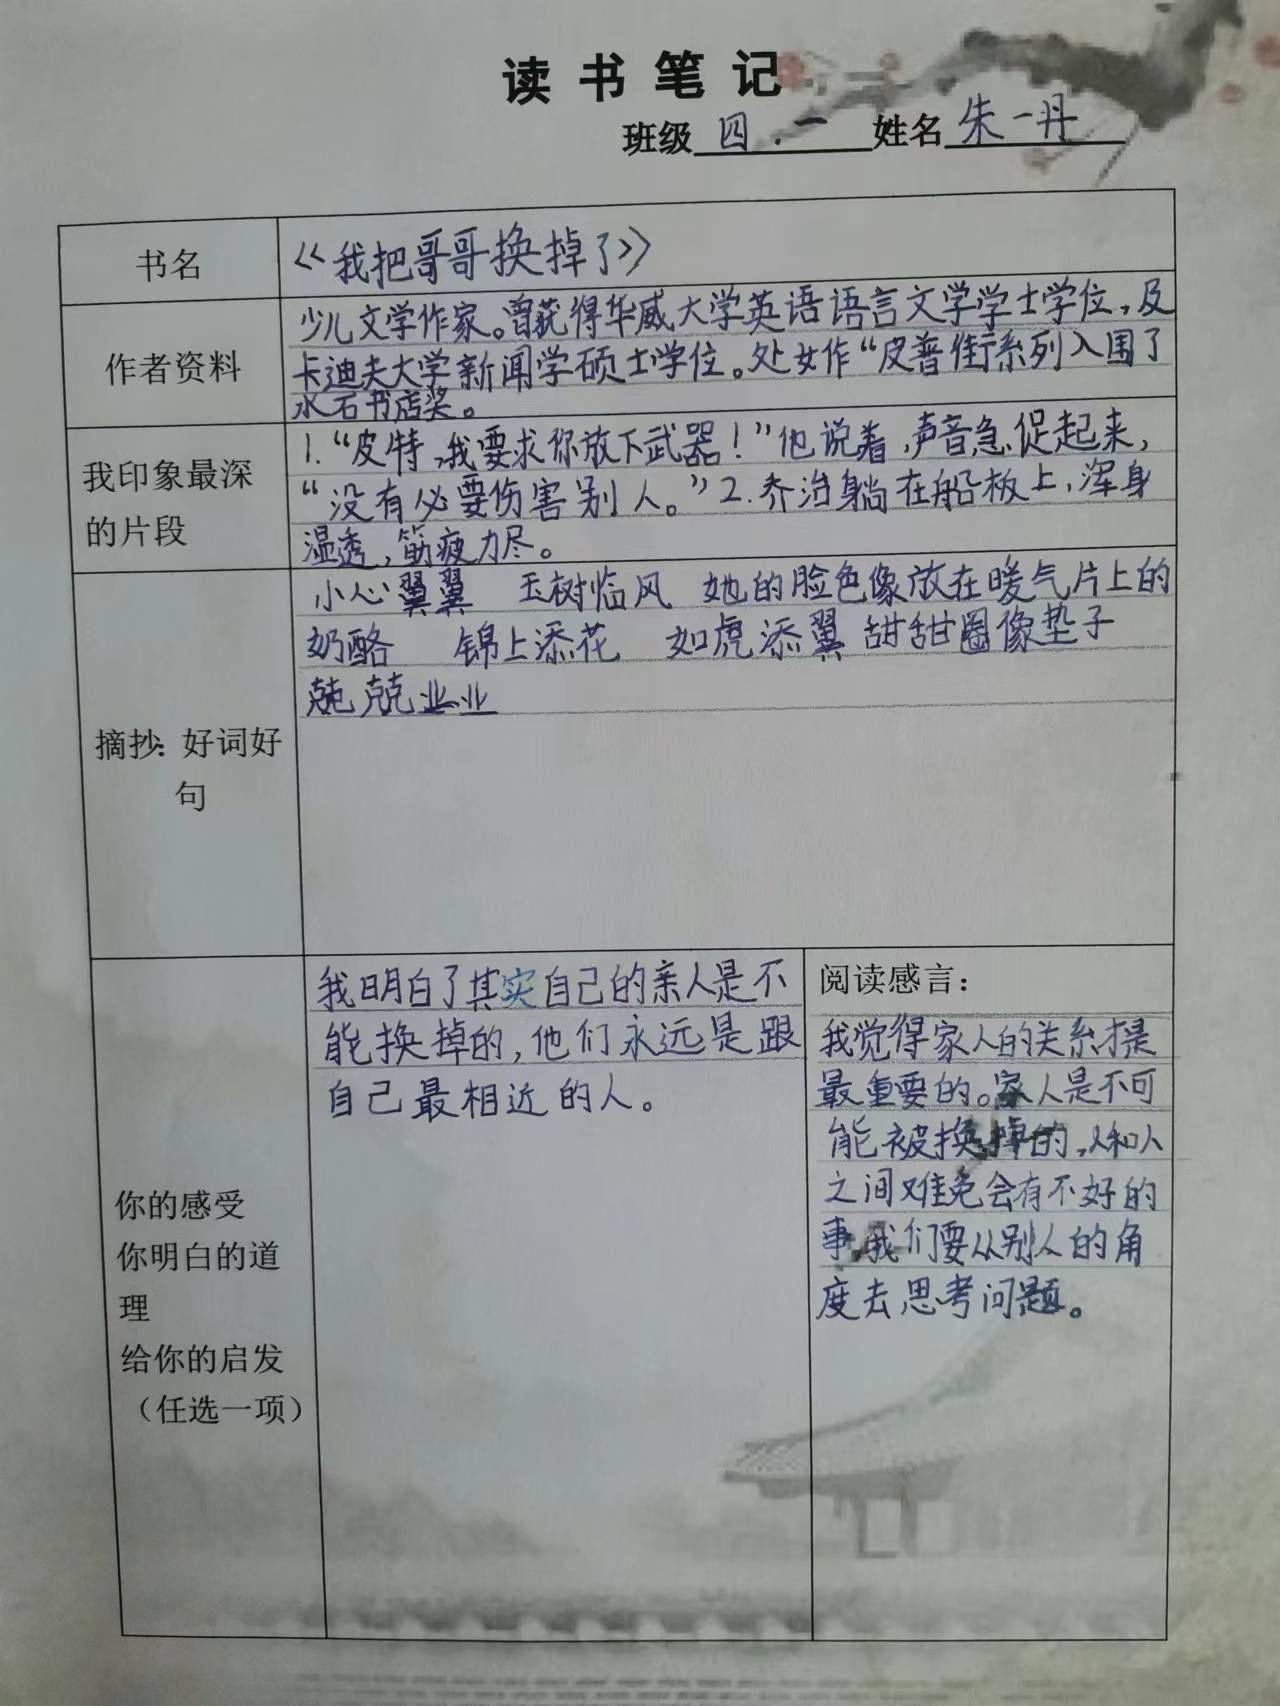 读书笔记
班级 四.一 姓名 朱一丹
书名
《我把哥哥换掉了》
作者资料
少儿文学作家。曾获得华威大学英语语言文学学士学位，及
卡迪夫大学新闻学硕士学位。处女作“皮普街系列入围了
水石书店奖。
我印象最深
的片段
1.“皮特，我要求你放下武器！”他说着，声音急促起来，
“没有必要伤害别人。”2.乔治躺在船板上，浑身
湿透，筋疲力尽。
摘抄：好词好
句
小心翼翼 玉树临风 她的脸色像放在暖气片上的
奶酪 锦上添花 如虎添翼 甜甜圈像垫子
兢兢业业
你的感受
你明白的道
理
给你的启发
（任选一项）
我明白了其实自己的亲人是不
能换掉的，他们永远是跟
自己最相近的人。
阅读感言：
我觉得家人的关系才是
最重要的。家人是不可
能被换掉的，人和人
之间难免会有不好的
事，我们要从别人的角
度去思考问题。